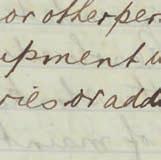 or other per
upment u
ries or add